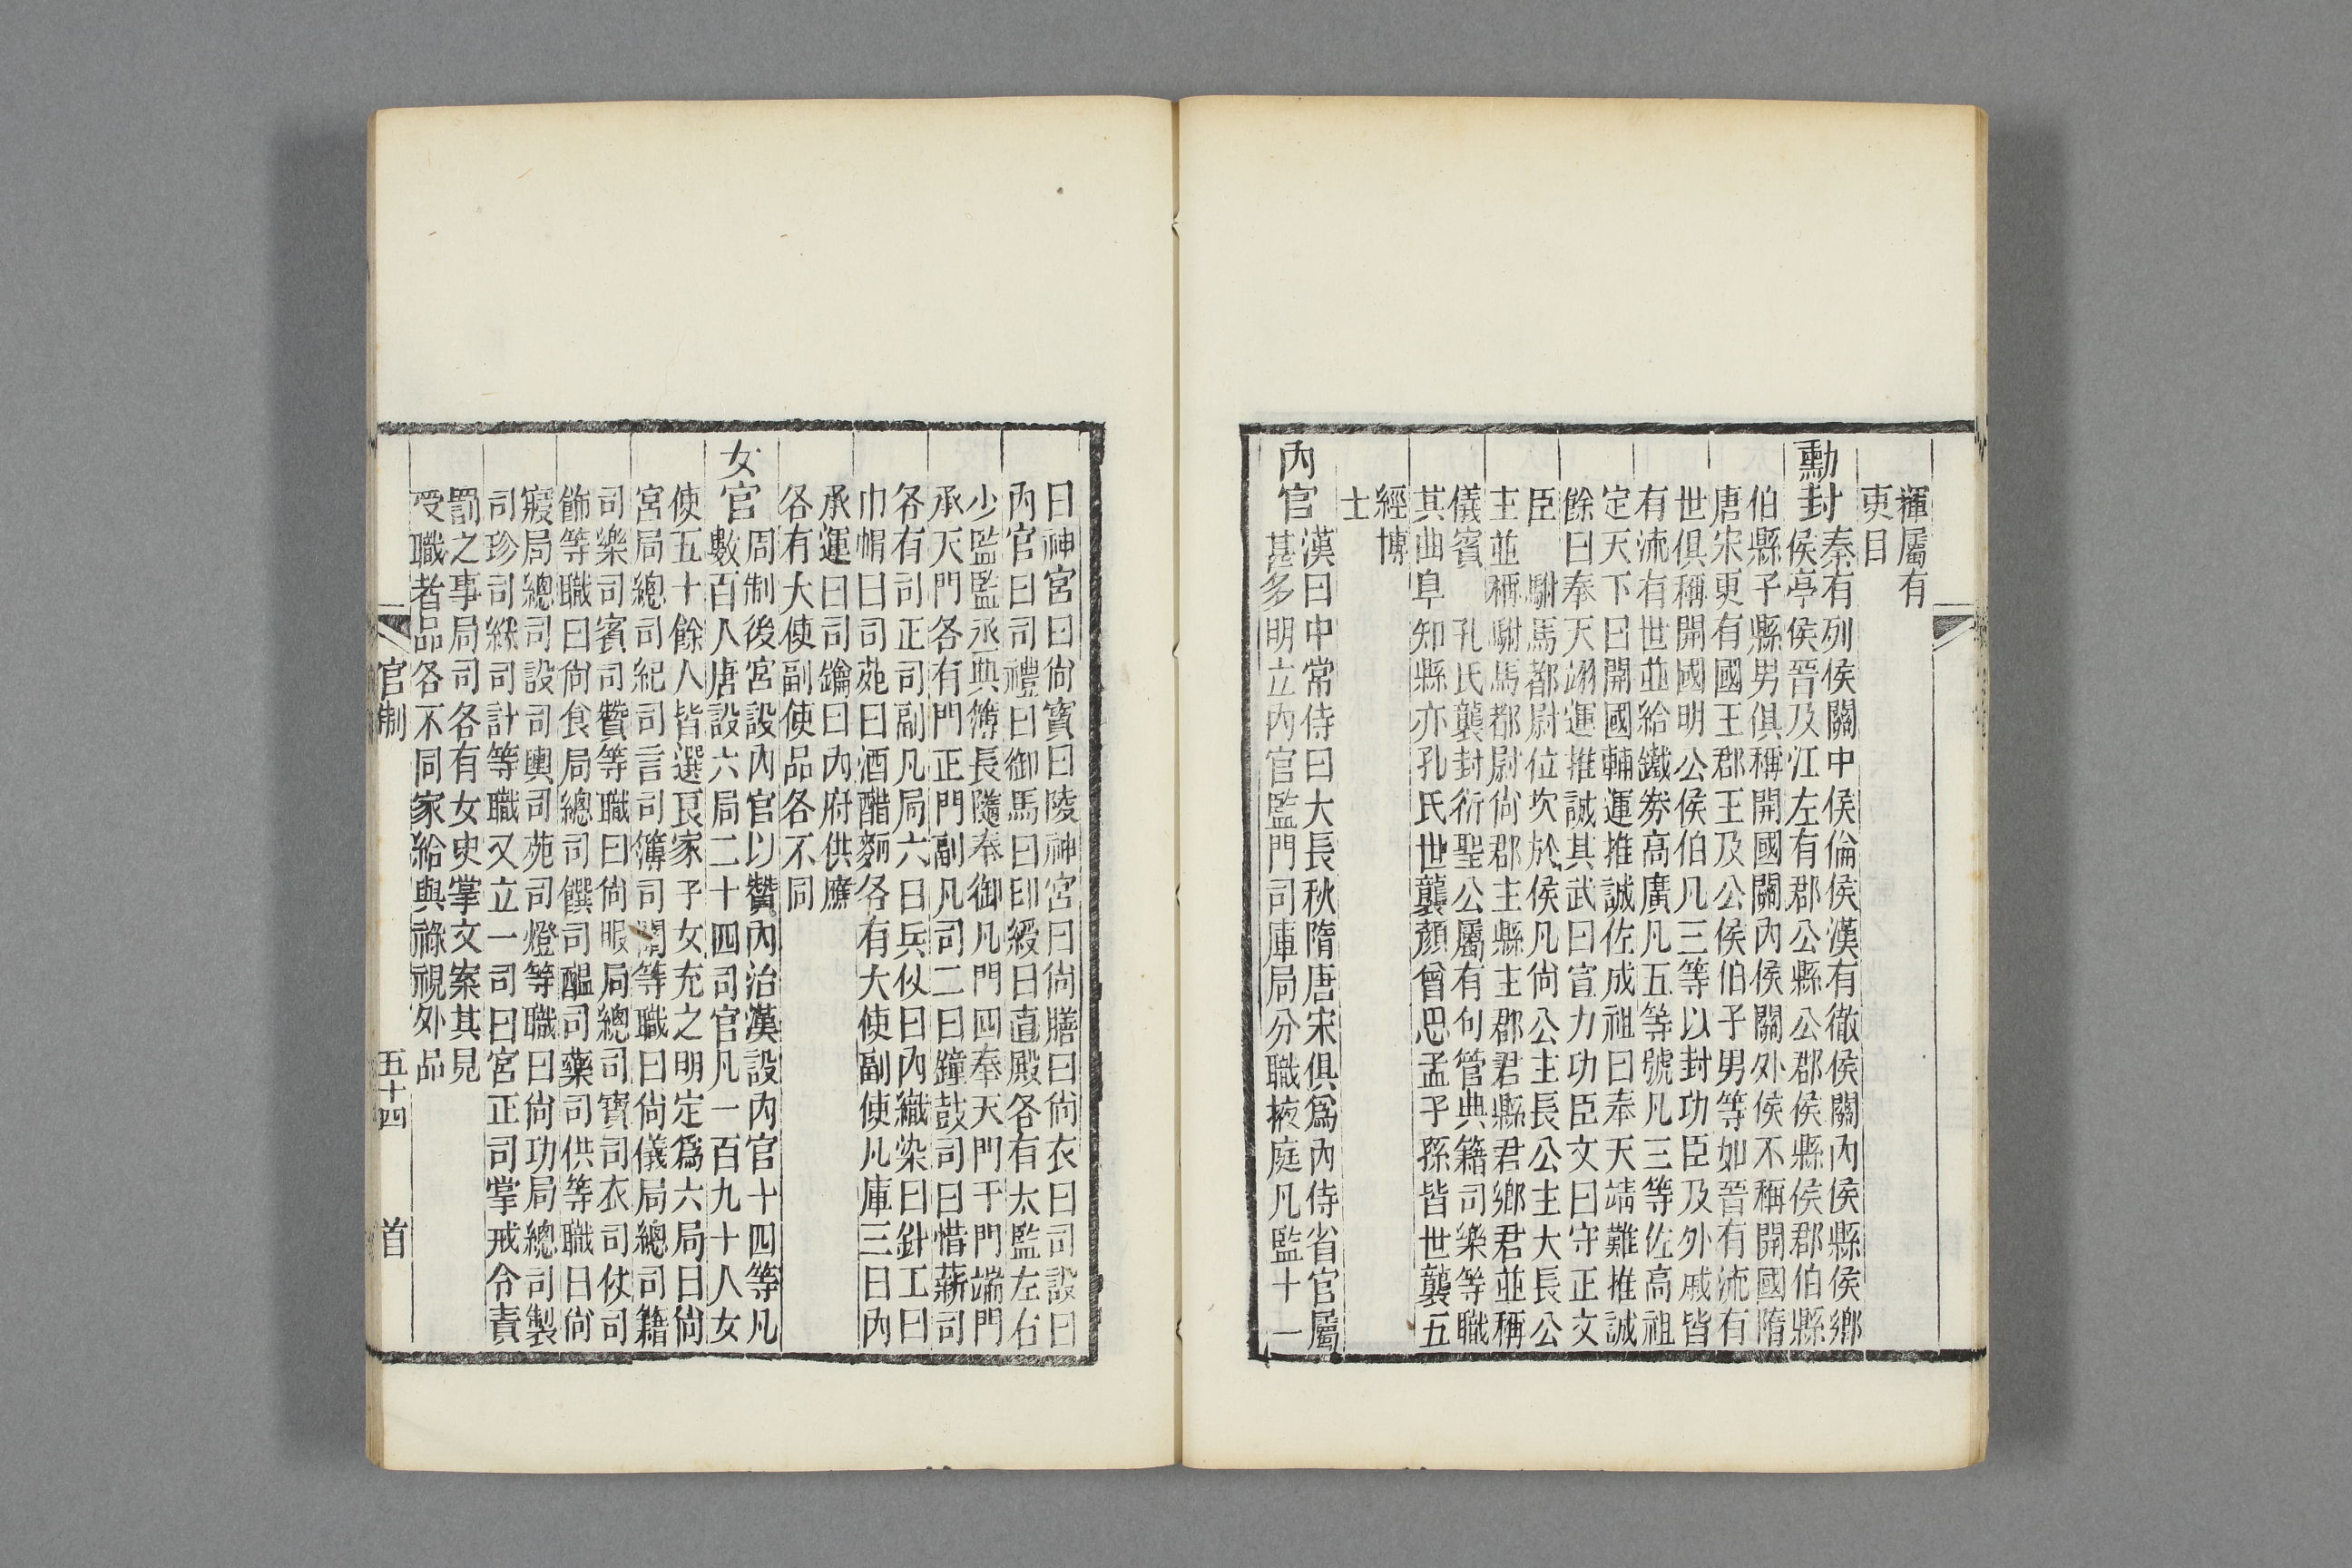 褌屬有
吏目
勳封
秦有列侯關中侯倫侯漢有徹侯關內侯縣侯鄉
侯亭侯晉及江左有郡公縣公郡侯縣侯郡伯縣
伯縣子縣男俱稱開國關內侯關外侯不稱開國隋
唐宋更有國王郡王及公侯伯子男等如晉有流有
世俱稱開國明公侯伯凡三等以封功臣及外戚皆
有流有世並給鐵券高廣凡五等號凡三等佐高祖
定天下曰開國輔運推誠佐成祖曰奉天靖難推誠
餘曰奉天翊運推誠其武曰宣力功臣文曰守正文
臣 駙馬都尉位次於侯凡尚公主長公主大長公
主並稱駙馬都尉尚郡主縣主郡君縣君鄉君並稱
儀賓 孔氏襲封衍聖公屬有句管典籍司樂等職
其曲阜知縣亦孔氏世襲顏曾思孟子孫皆世襲五
經博
士
內官
漢曰中常侍曰大長秋隋唐宋俱爲內侍省官屬
甚多明立內官監門司庫局分職掖庭凡監十一
曰神宮曰尚寶曰陵神宮曰尚膳曰尚衣曰司設曰
內官曰司禮曰御馬曰印綬曰直殿各有太監左右
少監監丞典簿長隨奉御凡門四奉天門午門端門
承天門各有門正門副凡司二曰鐘鼓司曰惜薪司
各有司正司副凡局六曰兵仗曰內織染曰針工曰
巾帽曰司苑曰酒醋麪各有大使副使凡庫三曰內
承運曰司鑰曰內府供應
各有大使副使品各不同
女官
周制後宮設內官以贊內治漢設內官十四等凡
數百人唐設六局二十四司官凡一百九十人女
使五十餘人皆選良家子女充之明定爲六局曰尚
宮局總司紀司言司簿司闈等職曰尚儀局總司籍
司樂司賓司贊等職曰尚服局總司寶司衣司仗司
飾等職曰尚食局總司饌司醞司藥司供等職曰尚
寢局總司設司輿司苑司燈等職曰尚功局總司製
司珍司綵司計等職又立一司曰宮正司掌戒令責
罰之事局司各有女史掌文案其見
受職者品各不同家給與祿視外品
官制 五十四 首